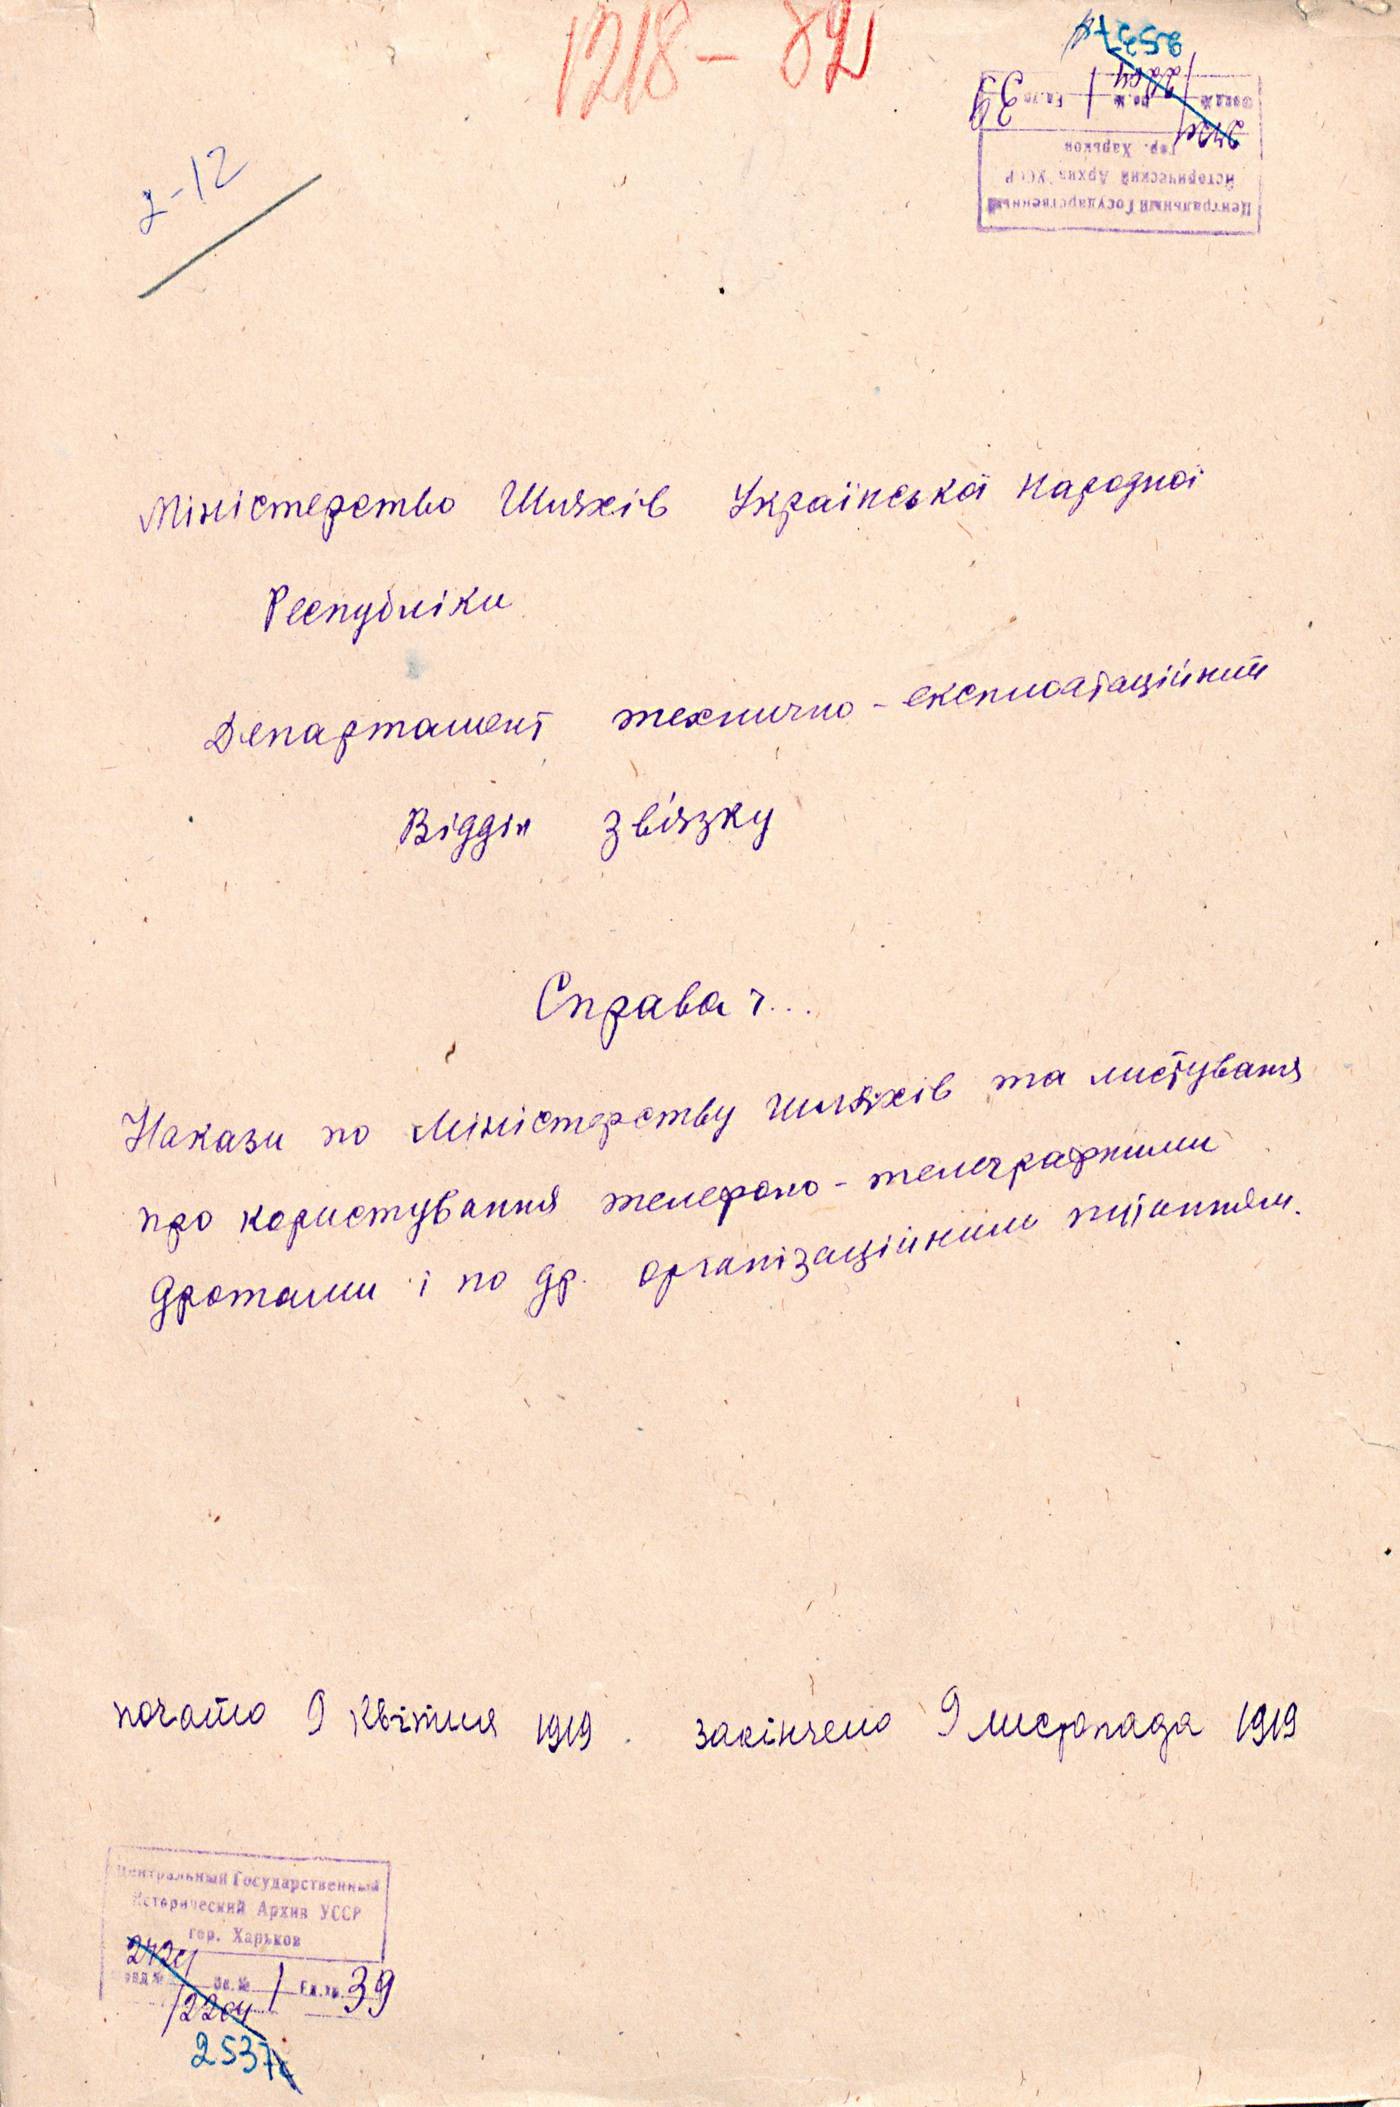 1218-82
2-12
Центральный Государственный
Исторический Архив УССР
гор. Харьков
Фонд № Оп. № 1 Ед. хр. 39
2537
Міністерство Шляхів Української Народної
Республіки
Департамент технично-експлоатаційний
Відділ зв'язку
Справа ч...
Накази по Міністерству шляхів та листування
про користування телефоно-телеграфними
дротами і по др. організаційним питанням.
почато 9 квітня 1919 закінчено 9 листопада 1919
Центральный Государственный
Исторический Архив УССР
гор. Харьков
Фонд № Оп. № 1 Ед. хр. 39
2537